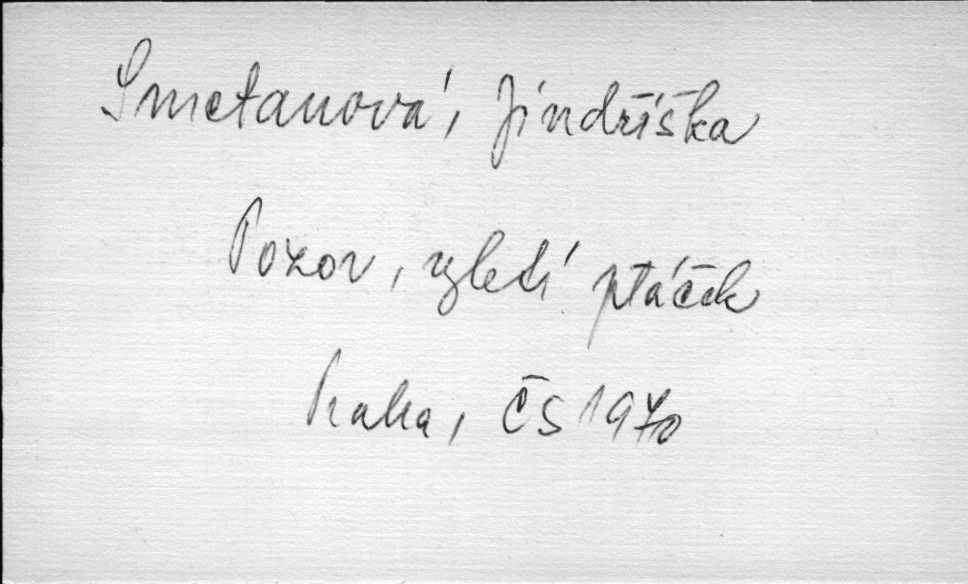 Smetanová, Jindřiška
Pozor, vyletí ptáček
Praha, ČS 1970